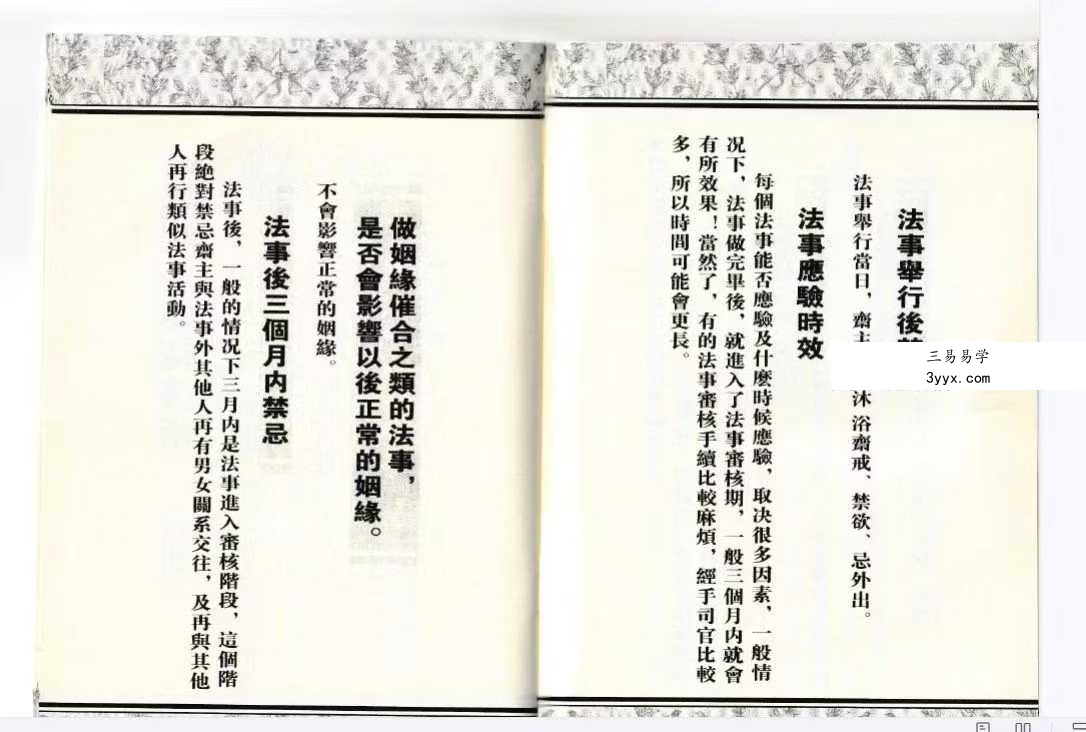 法事舉行後
法事舉行當日，齋主
沐浴齋戒、禁欲、忌外出。
法事應驗時效
每個法事能否應驗及什麼時候應驗，取决很多因素，一般情
况下，法事做完畢後，就進入了法事審核期，一般三個月内就會
有所效果！當然了，有的法事審核手續比較麻煩，經手司官比較
多，所以時間可能會更長。
三易易学
3yyx.com
做姻緣催合之類的法事，
是否會影響以後正常的姻緣。
不會影響正常的姻緣。
法事後三個月内禁忌
法事後，一般的情况下三月内是法事進入審核階段，這個階
段絶對禁忌齋主與法事外其他人再有男女關系交往，及再與其他
人再行類似法事活動。